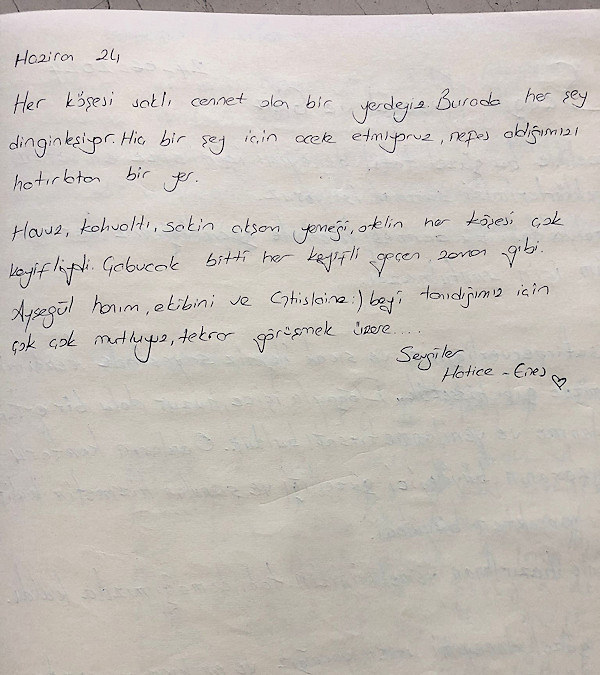 Haziran 24
Her köşesi saklı cennet olan bir yerdeyiz. Burada her şey
dinginleşiyor. Hiç bir şey için acele etmiyoruz, nefes aldığımızı
hatırlatan bir yer.
Havuz, kahvaltı, sakin akşam yemeği, otelin her köşesi çok
keyifliydi. Çabucak bitti her keyifli geçen zaman gibi.
Ayşegül hanım, ekibini ve :) bey'i tanıdığımız için
çok çok mutluyuz, tekrar görüşmek üzere....
Sevgiler
Hatice - Enes ♡